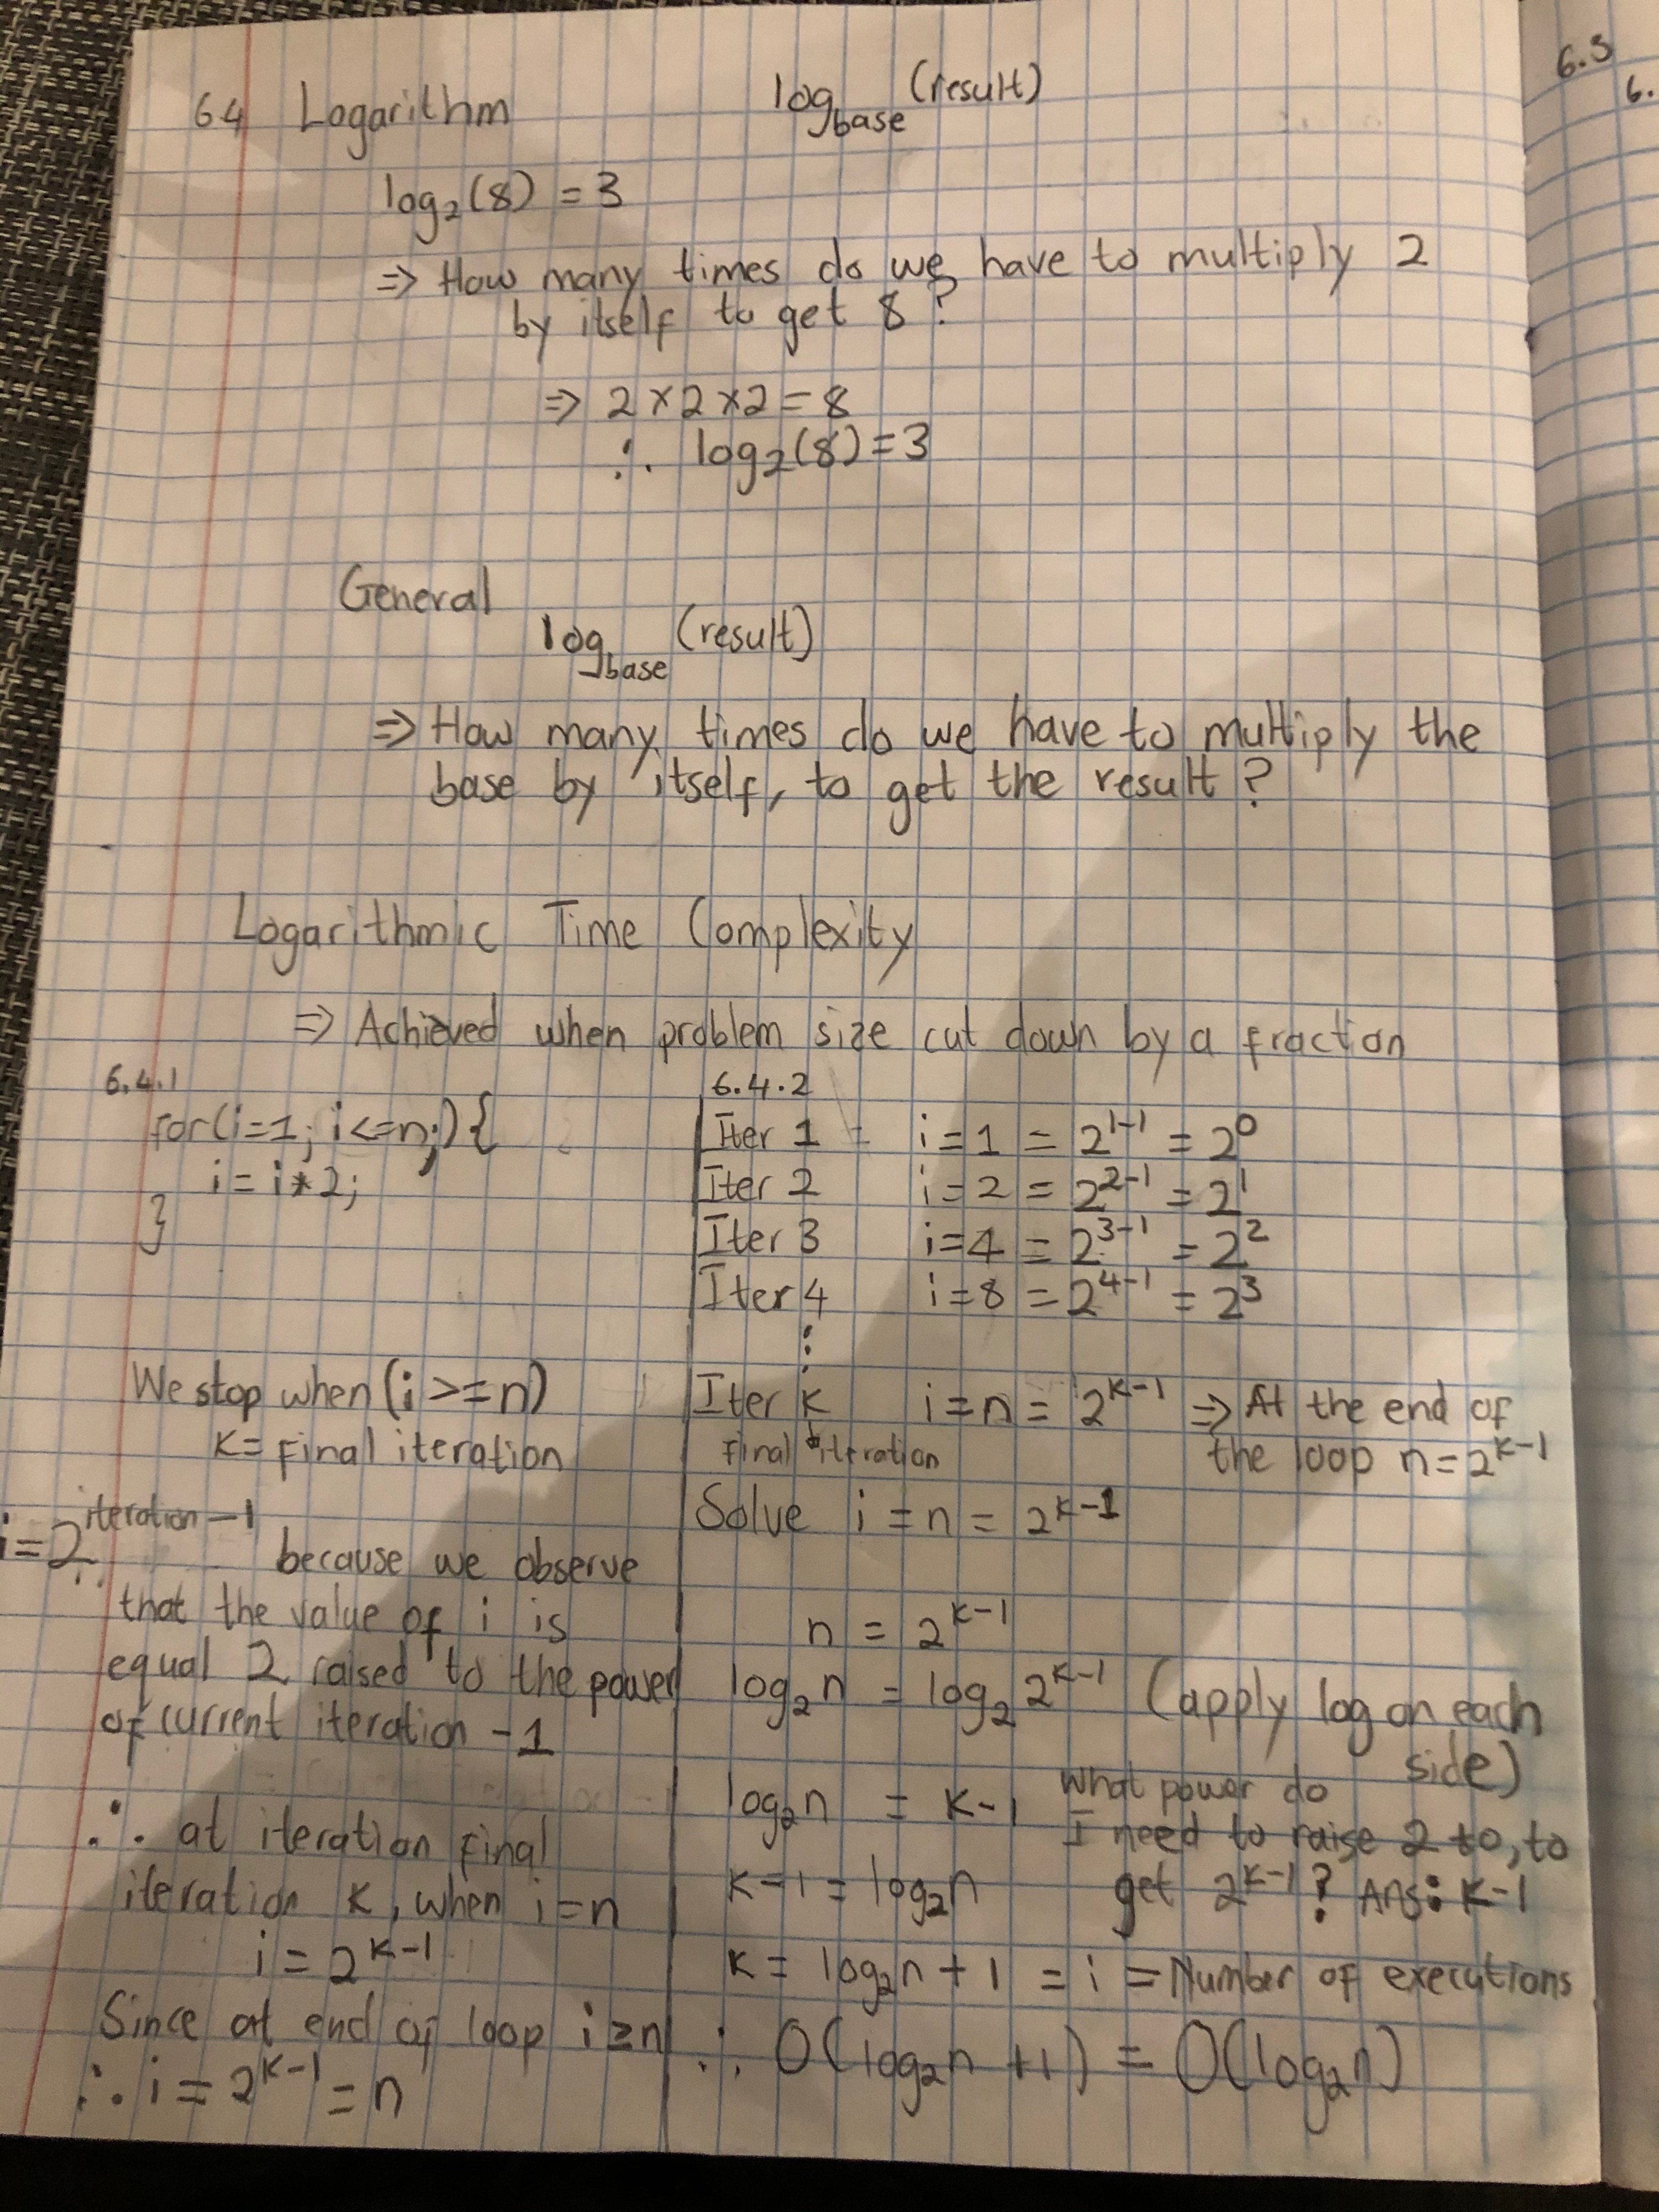 6.3
6.
6.4 Logarithm
log base (result)
log₂(8) = 3
⇒ How many times do we have to multiply 2
by itself to get 8?
⇒ 2 × 2 × 2 = 8
∴ log₂(8) = 3
General
log base (result)
⇒ How many times do we have to multiply the
base by itself, to get the result?
Logarithmic Time Complexity
⇒ Achieved when problem size cut down by a fraction
6.4.1
for(i=1; i<=n;){
i = i*2;
}
We stop when (i >= n)
K = final iteration
i = 2^(iteration - 1)
because we observe
that the value of i is
equal 2 raised to the power
of current iteration - 1
∴ at iteration final
iteration K, when i = n
i = 2^(K-1)
Since at end of loop i ≥ n
∴ i = 2^(K-1) = n
6.4.2
Iter 1 = i = 1 = 2^(1-1) = 2^0
Iter 2 i = 2 = 2^(2-1) = 2^1
Iter 3 i = 4 = 2^(3-1) = 2^2
Iter 4 i = 8 = 2^(4-1) = 2^3
⋮
Iter K i = n = 2^(K-1) ⇒ At the end of
final iteration the loop n = 2^(K-1)
Solve i = n = 2^(K-1)
n = 2^(K-1)
log₂n = log₂2^(K-1) (apply log on each
side)
log₂n = K-1 What power do
I need to raise 2 to, to
K-1 = log₂n get 2^(K-1)? Ans: K-1
K = log₂n + 1 = i = Number of executions
∴ O(log₂n + 1) = O(log₂n)